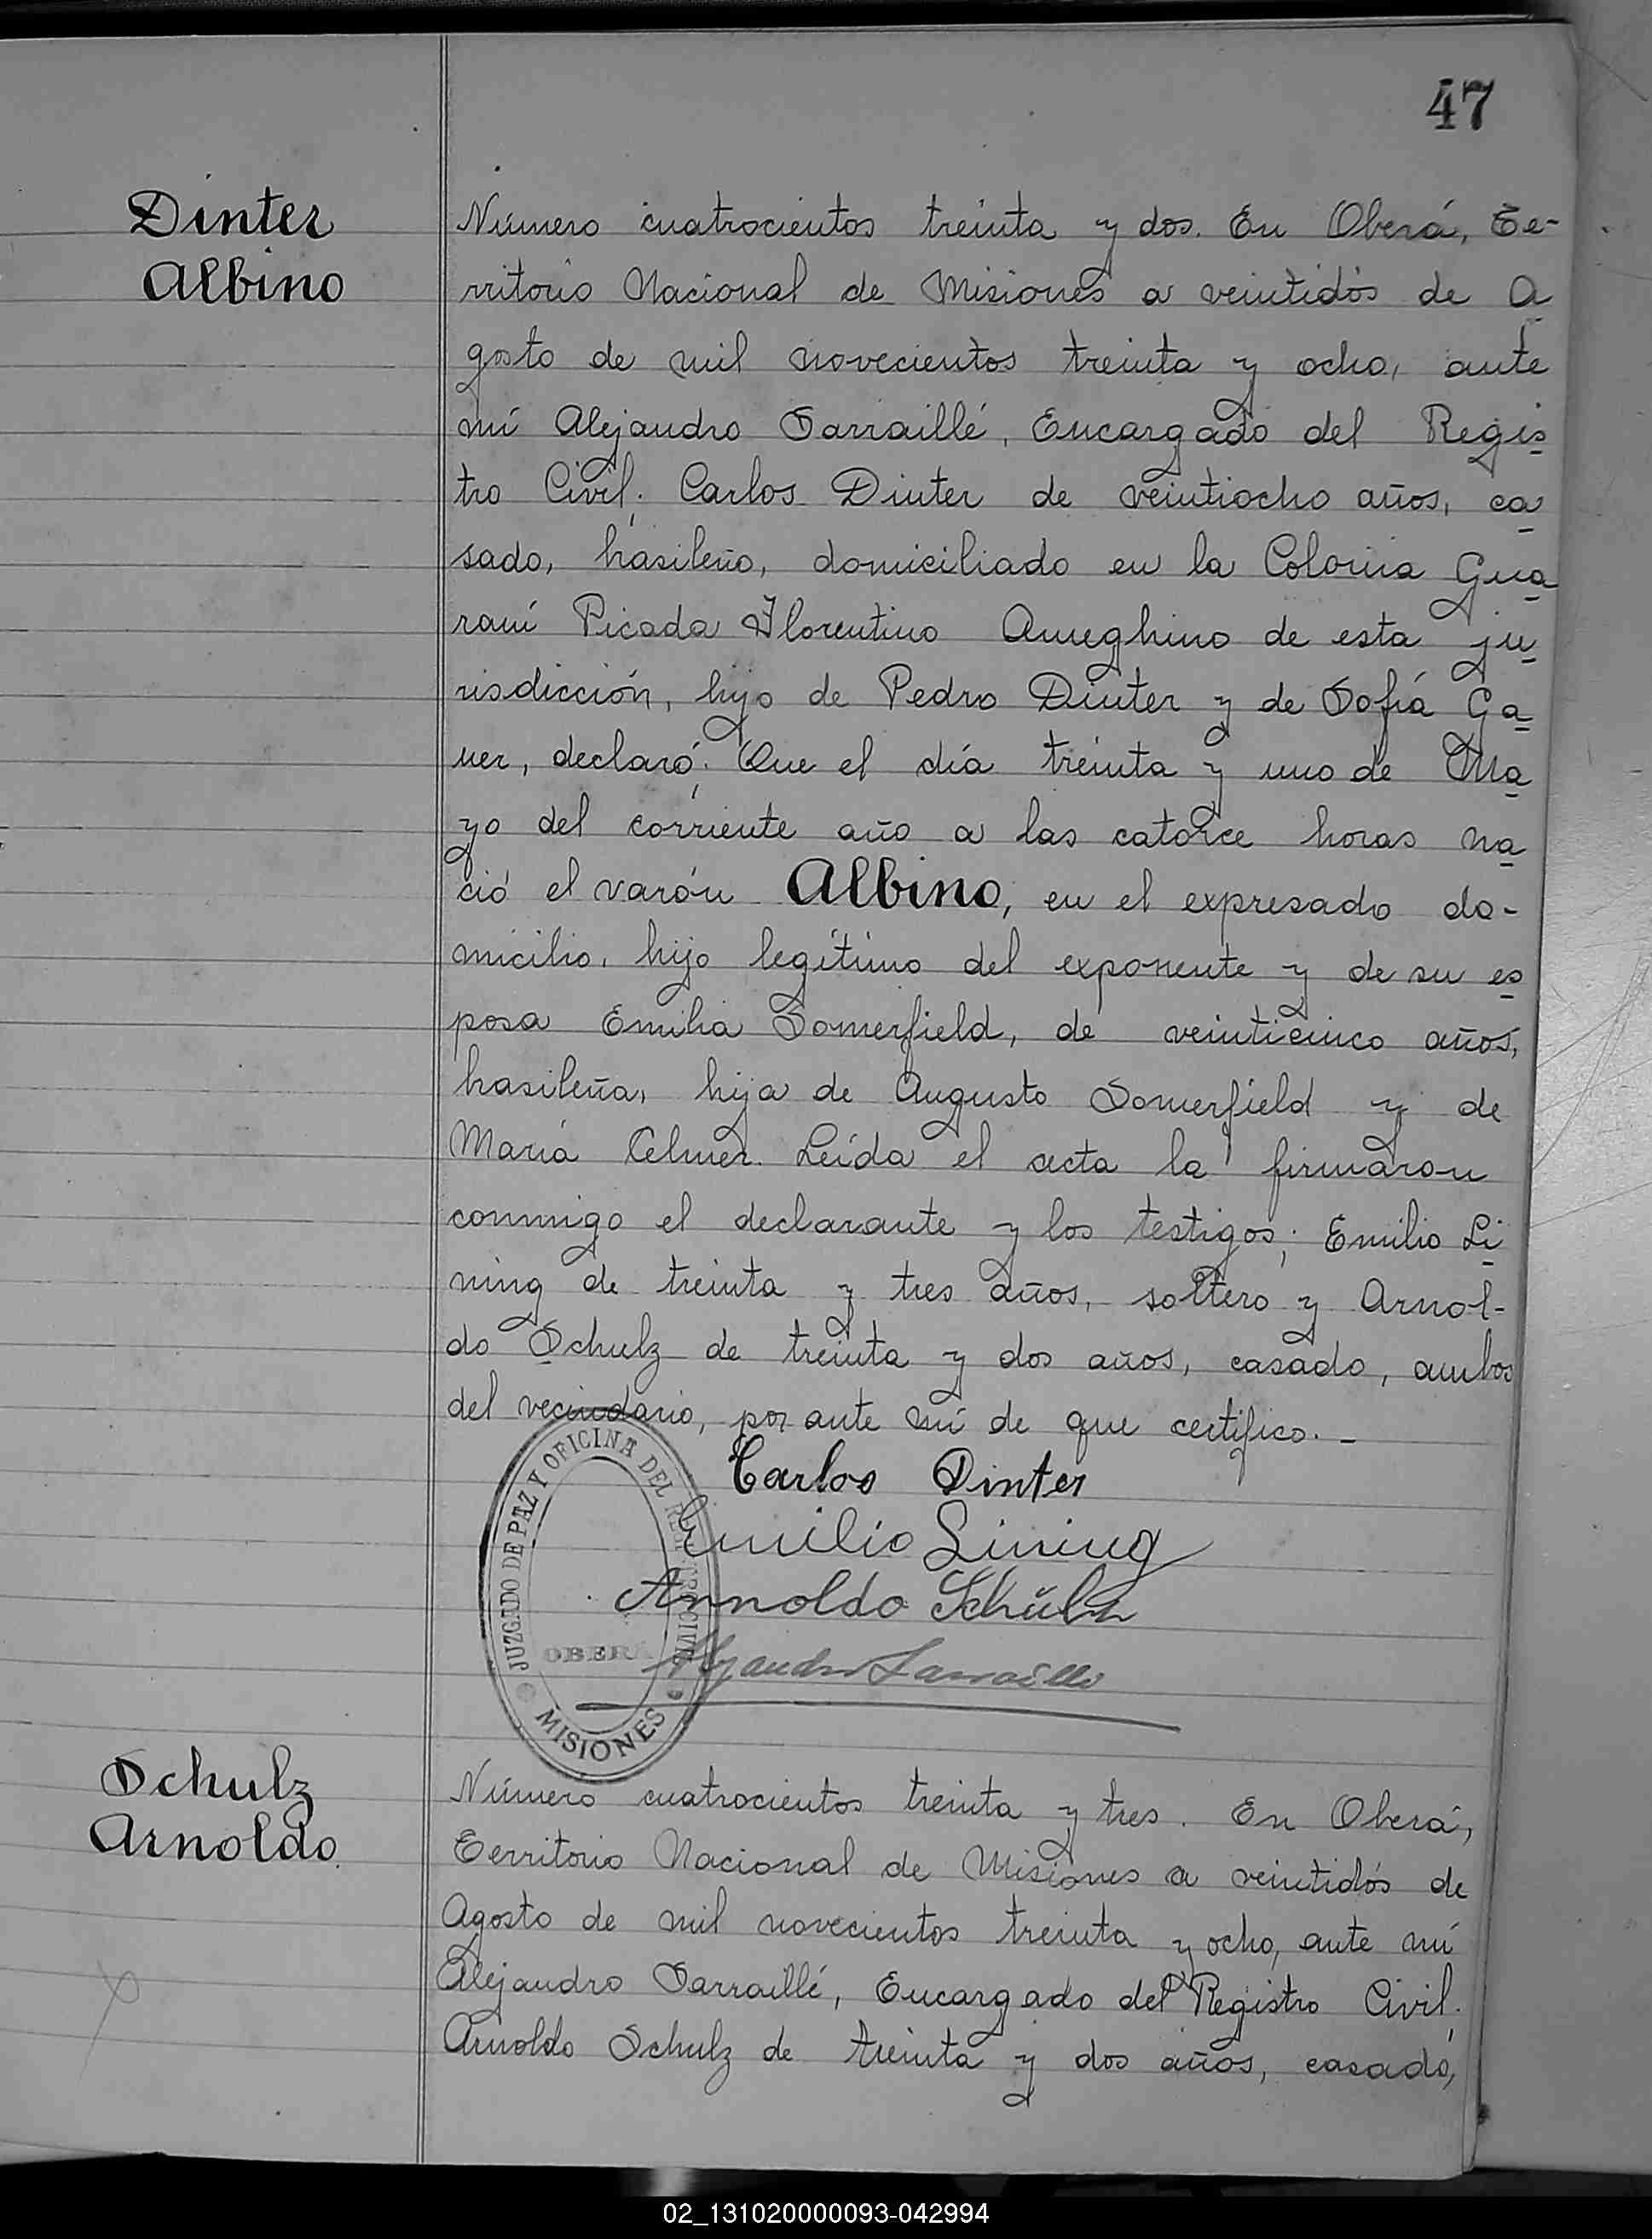 47
Dinter
Albino
Número cuatrocientos treinta y dos. En Oberá, Te-
rritorio Nacional de Misiones a veintidós de A
gosto de mil novecientos treinta y ocho, ante
mí Alejandro Sarraillé, Encargado del Regis
tro Civil; Carlos Dinter de veintiocho años, ca
sado, brasileño, domiciliado en la Colonia Gua
raní Picada Florentino Ameghino de esta ju
risdicción, hijo de Pedro Dinter y de Sofía Ga
uer, declaró: Que el día treinta y uno de Ma
yo del corriente año a las catorce horas na
ció el varón Albino, en el expresado do-
micilio, hijo legítimo del exponente y de su es
posa Emilia Somerfield, de veinticinco años,
brasileña, hija de Augusto Somerfield y de
María Celmer. Leída el acta la firmaron
conmigo el declarante y los testigos; Emilio Li
ning de treinta y tres años, soltero y Arnol-
do Schulz de treinta y dos años, casado, ambos
del vecindario, por ante mí de que certifico. -
Carlos Dinter
Emilio Lining
Arnoldo Schülz
Alejandro Sarraillé
JUZGADO DE PAZ Y OFICINA DEL REGISTRO CIVIL
OBERÁ
MISIONES
Schulz
Arnoldo
Número cuatrocientos treinta y tres. En Oberá,
Territorio Nacional de Misiones a veintidós de
Agosto de mil novecientos treinta y ocho, ante mí
Alejandro Sarraillé, Encargado del Registro Civil;
Arnoldo Schulz de treinta y dos años, casado,
02_131020000093-042994